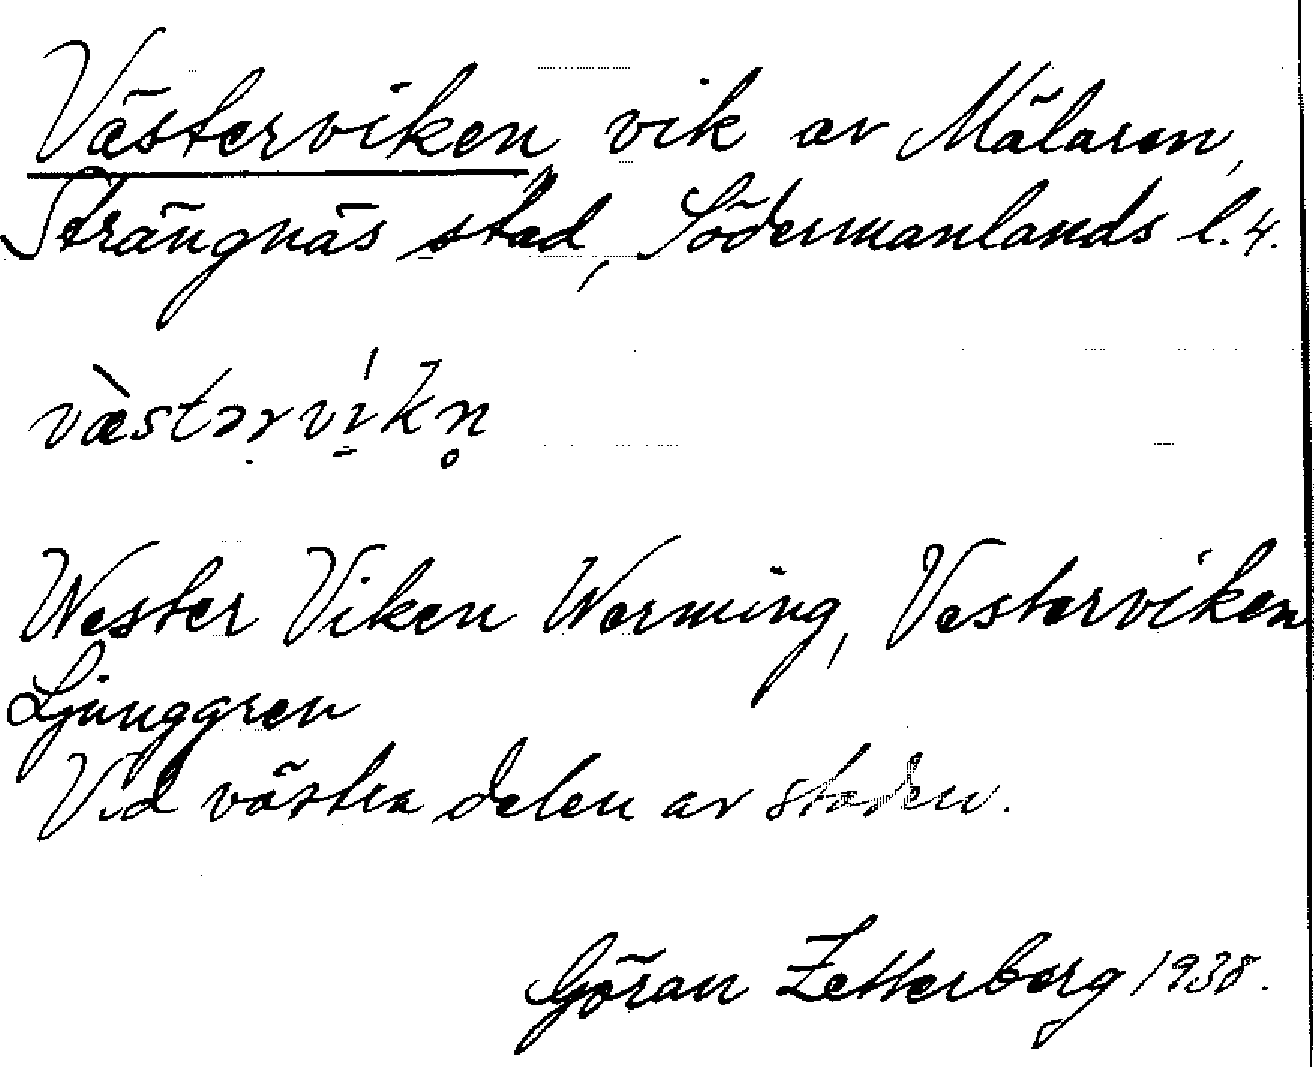 Västerviken vik av Mälaren,
Strängnäs stad, Södermanlands l. 4.
væ̀stərvı́kn̥
Wester Viken Werming, Vesterviken
Ljunggren
Vid västra delen av staden.
Göran Zetterberg 1938.